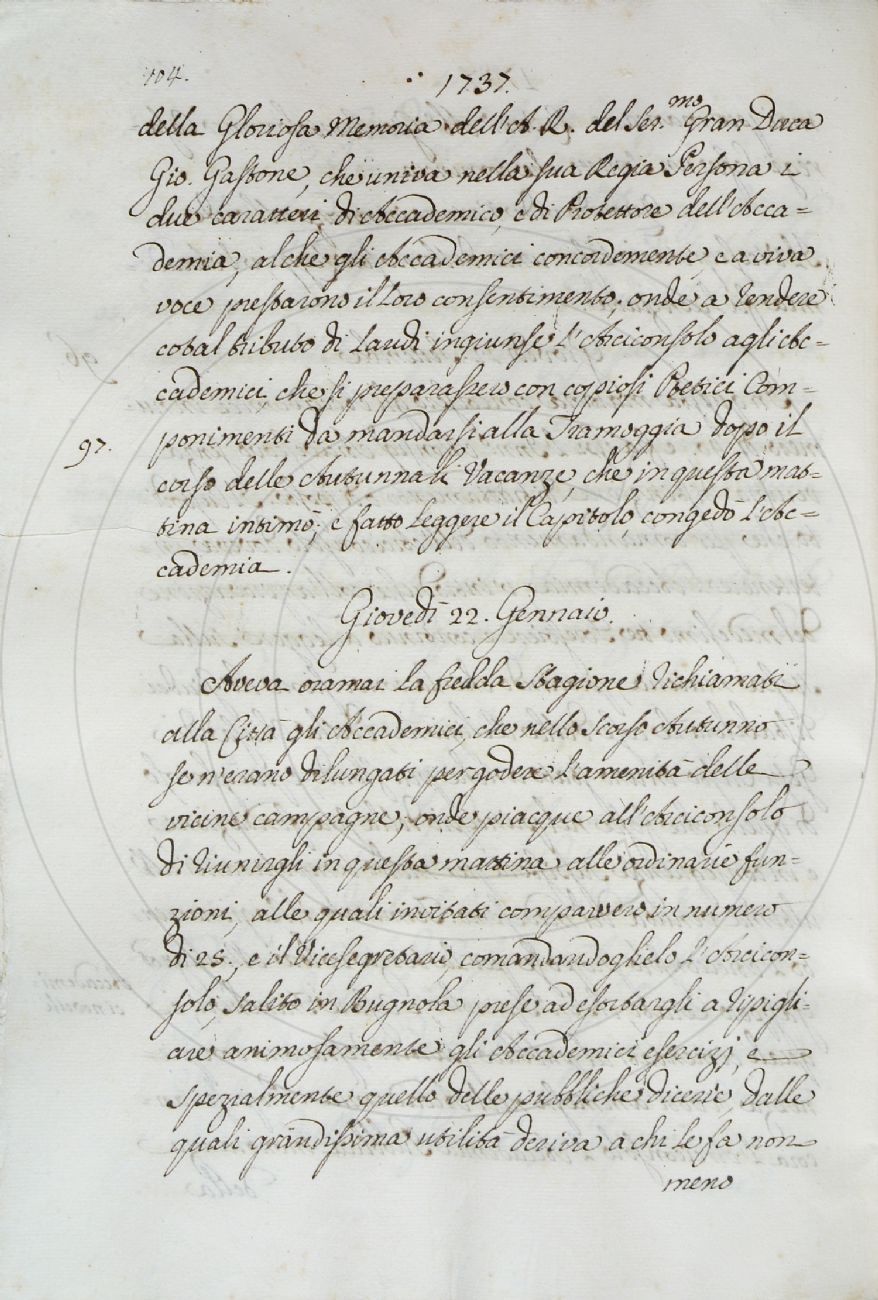 104.
1737.
della Gloriosa Memoria dell'A. R. del Ser.mo Gran Duca
Gio. Gastone, che univa nella sua Regia Persona i
due caratteri di Accademico, e di Protettore dell'Acca=
demia, al che gli Accademici concordemente, e a viva
voce prestarono il loro consentimento; onde a rendere
cotal tributo di Laudi ingiunse l'Arciconsolo agli Ac=
cademici, che si preparassero con copiosi Poetici Com=
ponimenti da mandarsi alla Tramoggia dopo il
97.
corso delle Autunnali Vacanze, che in questa mat=
tina intimò; e fatto leggere il Capitolo, congedò l'Ac=
cademia.
Giovedì 22. Gennaio.
Aveva oramai la fredda Stagione richiamati
alla Città gli Accademici, che nello scorso Autunno
se n'erano dilungati per godere l'amenità delle
vicine campagne; onde piacque all'Arciconsolo
di riunirgli in questa mattina alle ordinarie fun=
zioni, alle quali invitati comparvero in numero
di 25., e il Vicesegretario, comandandoglielo l'Arcicon=
solo, salito in Bugnola prese ad esortargli a ripigli=
are animosamente gli Accademici esercizj, e
spezialmente quello delle pubbliche dicerie, dalle
quali grandissima utilità deriva a chi le fa non
meno